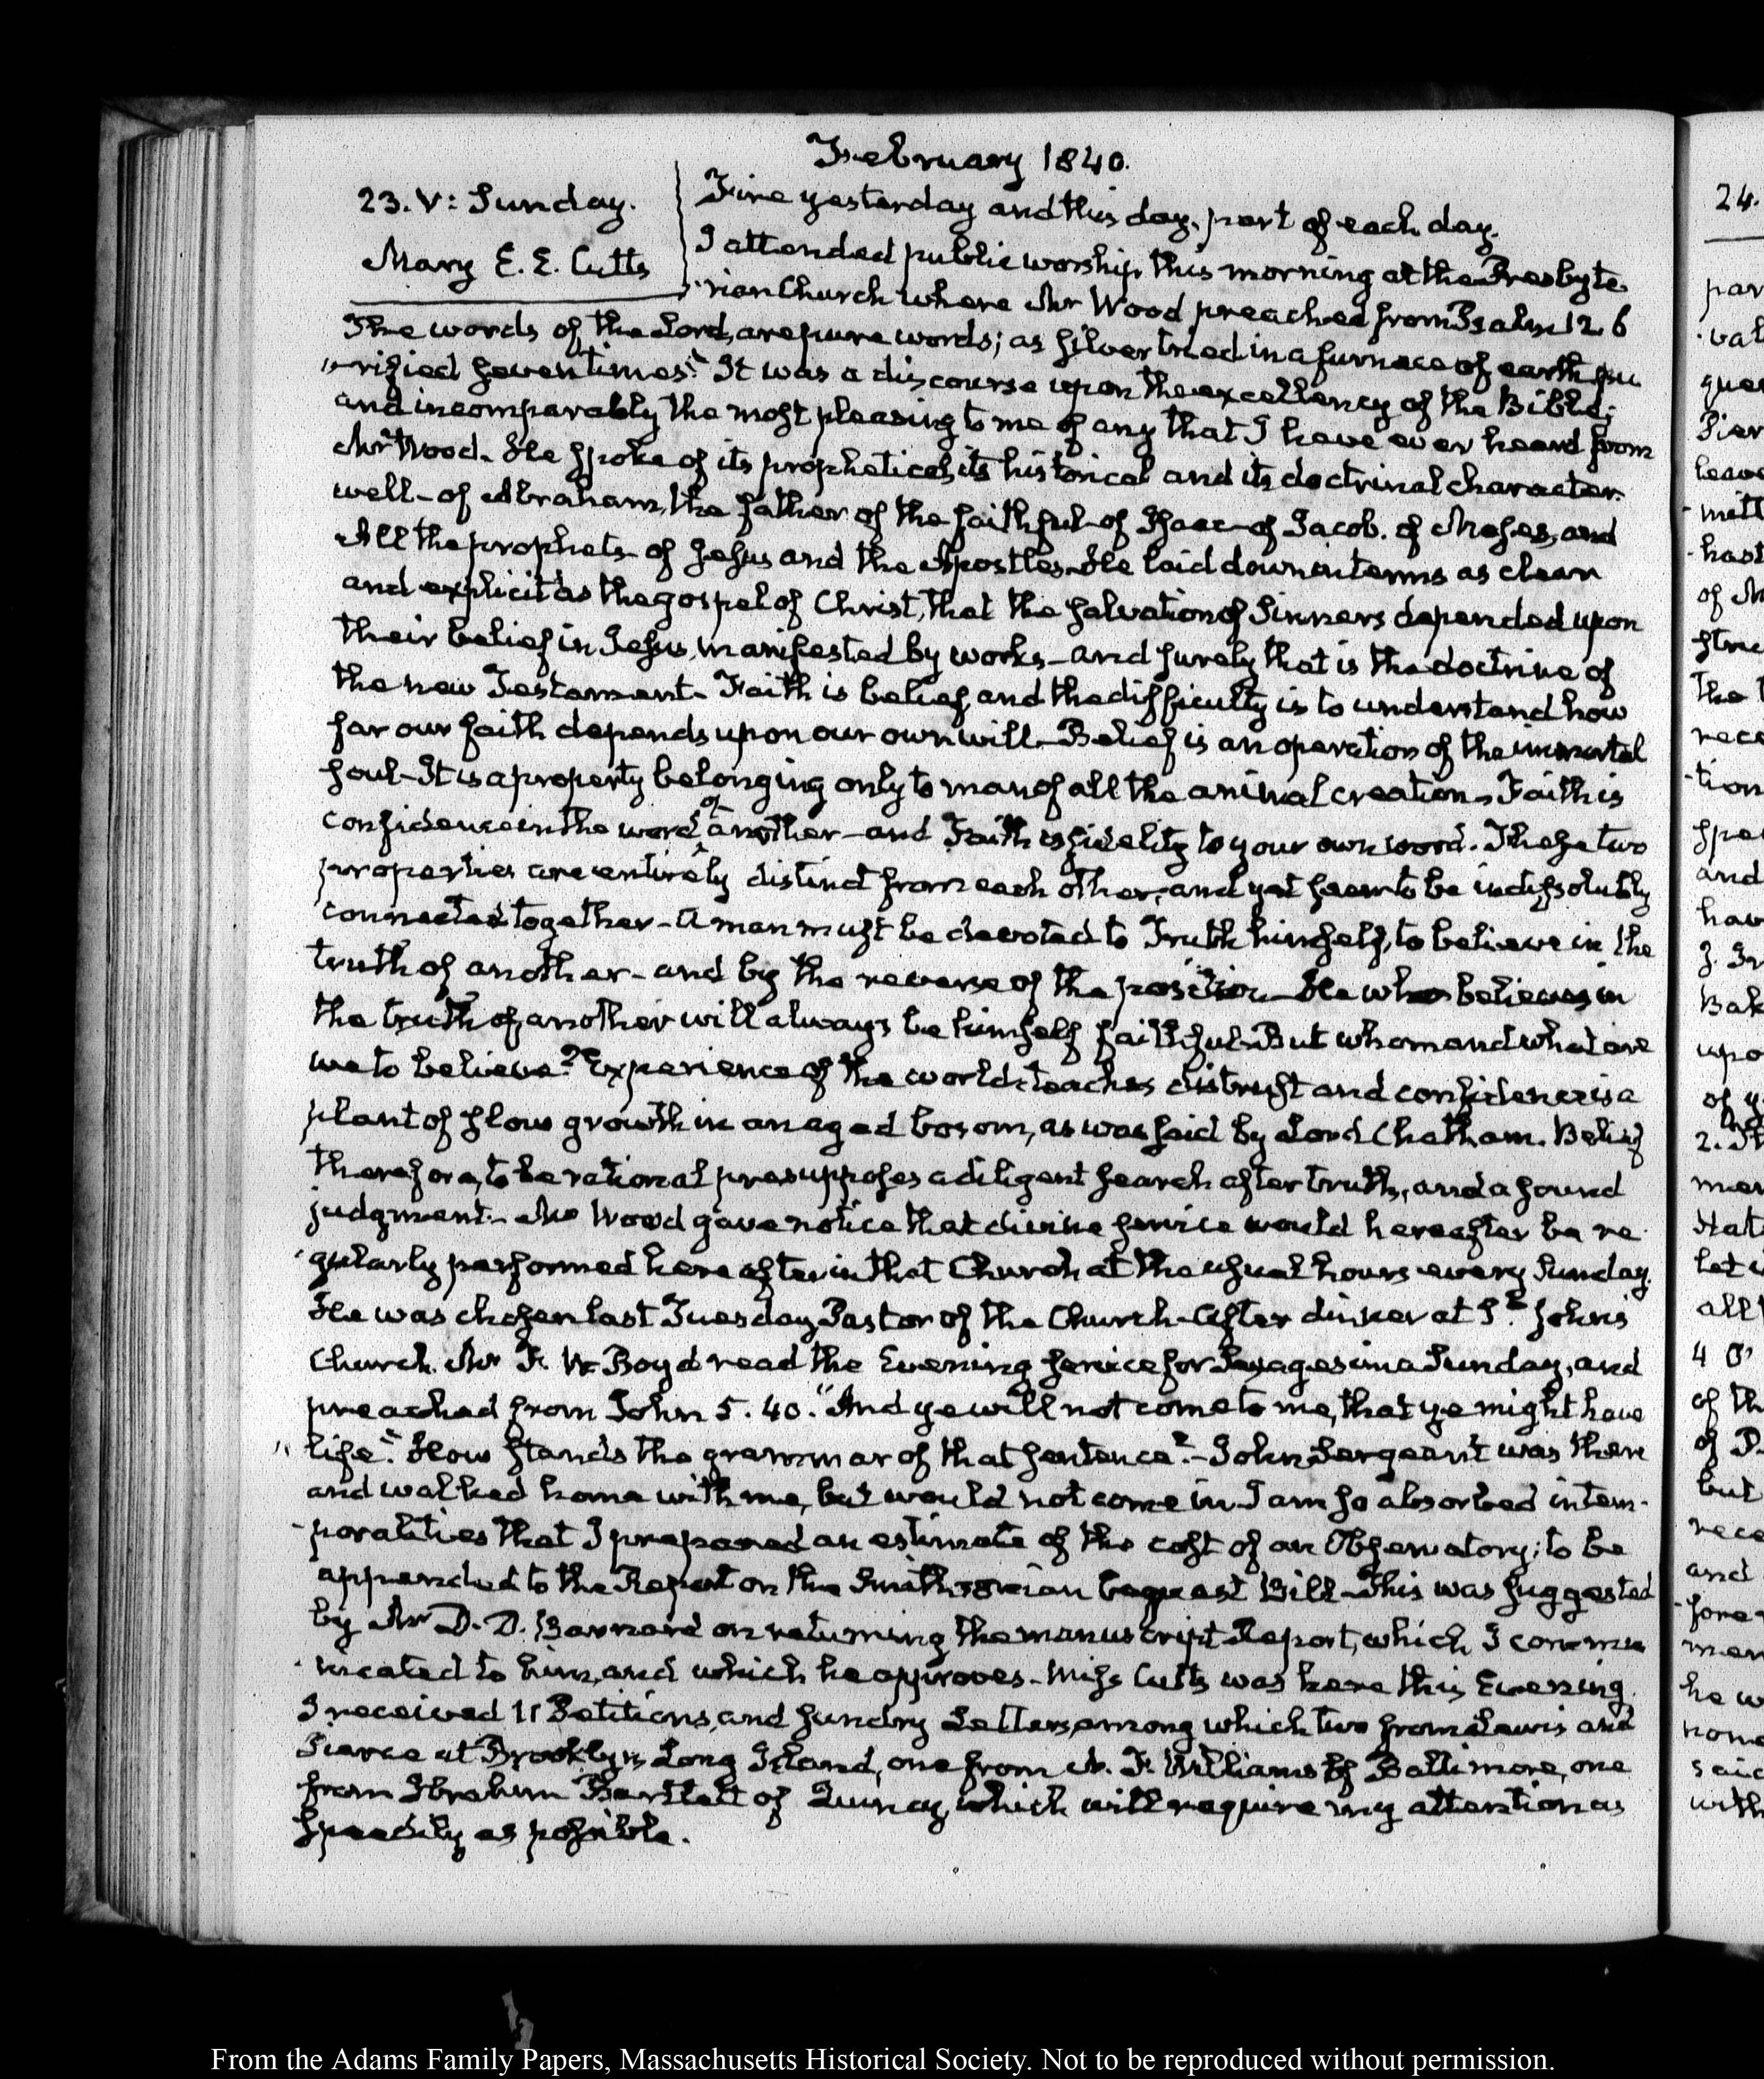 February 1840.
23. V: Sunday.
Mary E. E. Cutts
Fine yesterday and this day, part of each day.
I attended public worship this morning at the Presbyte
-rian Church where Mr Wood preached from Psalm 12. 6
The words of the Lord, are pure words; as silver tried in a furnace of earth pu
"-rified seven times." It was a discourse upon the excellency of the Bible;
and incomparably the most pleasing to me of any that I have ever heard from
Mr Wood. He spoke of its prophetical, its historical and its doctrinal character.
well- of Abraham, the father of the faithful- of Isaac- of Jacob. of Moses, and
All the prophets- of Jesus and the Apostles. He laid down in terms as clear
and explicit as the gospel of Christ, that the salvation of Sinners depended upon
their belief in Jesus, manifested by works- and surely that is the doctrine of
the new Testament- Faith is belief, and the difficulty is to understand how
far our faith depends upon our own will- Belief is an operation of the immortal
soul- It is a property belonging only to man of all the animal creation- Faith is
confidence in the word of another- and Faith is fidelity to your own word. These two
properties are entirely distinct from each other, and yet seem to be indissolubly
connected together- A man must be devoted to Truth himself, to believe in the
truth of another- and by the reverse of the position- He who believes in
the truth of another will always be himself faithful- But whom and what are
we to believe? Experience of the world teaches distrust and confidence is a
plant of slow growth in an aged bosom, as was said by Lord Chatham. Belief
therefore, to be rational presupposes a diligent search after truth, and a sound
judgment.- Mr Wood gave notice that divine service would hereafter be re-
-gularly performed hereafter in that Church at the usual hours every Sunday.
He was chosen last Tuesday Pastor of the Church- After dinner at St. John's
Church. Mr F. W. Boyd read the Evening service for Sexagesima Sunday, and
preached from John 5. 40. "And ye will not come to me, that ye might have
"life." How stands the grammar of that sentence?- John Sergeant was there
and walked home with me, but would not come in. I am so absorbed in tem-
-poralities that I prepared an estimate of the cost of an Observatory; to be
appended to the Report on the Smithsonian bequest Bill- This was suggested
by Mr D. D. Barnard on returning the manuscript Report, which I commu
-nicated to him, and which he approves- Miss Cutts was here this Evening.
I received 11 Petitions, and sundry Letters, among which two from Lewis and
Pierce at Brooklyn Long Island, one from N. F. Williams of Baltimore, one
from Ibrahim Bartlett of Quincy, which will require my attention as
speedily as possible.
From the Adams Family Papers, Massachusetts Historical Society. Not to be reproduced without permission.